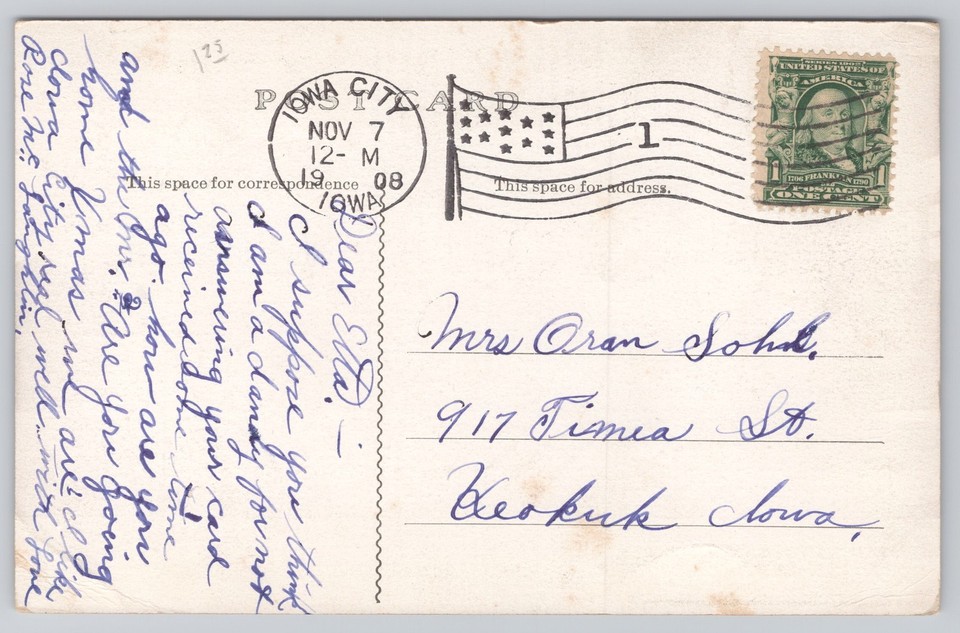 1 25
POST CARD
IOWA CITY
NOV 7
12- M
19 08
IOWA
1
SERIES 1902
UNITED STATES OF
AMERICA
1706 FRANKLIN 1790
1 1
POSTAGE
ONE CENT
This space for correspondence
This space for address.
Dear Etta; —
I suppose you think
I am a dandy for not
answering your card
received some time
ago. how are you
and the Mr. ? Are you going
home Xmas we are. I like
Iowa City real well. with love
Rose Mc Laughlin.
Mrs Oran Sohl.
917 Timea St.
Keokuk Iowa,